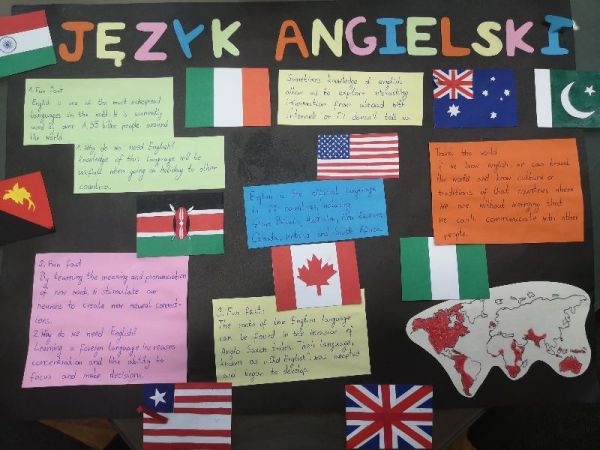 JĘZYK ANGIELSKI
1. Fun fact
English is one of the most widespread
languages in the world. It is currently
used by over 1,35 billion people around
the world.
1. Why do we need English?
Knowledge of this language will be
usefull when going on holiday to other
countries.
Sometimes knowledge of english
allow us to explore interesting
information from abroad with
internet or TV doesn't tell us.
Travel the world
if we know english we can travel
the world and know culture or
traditions of that countries where
we are without worrying that
we can't communicate with other
people.
English is the official language
in countries, including
Great Britain, Australia, New Zealand,
Canada, and South Africa.
2. Fun fact
By learning the meaning and pronunciation
of new words, to stimulate our
neurons to create new neural connec-
tions.
2. Why do we need English?
Learning a foreign language increases
concentration and the ability to
focus and make decisions.
3. Fun fact:
The roots of the English language
can be found in the invasion of
Anglo Saxon tribes. Their language,
known as "Old English", was adopted
and began to develop.